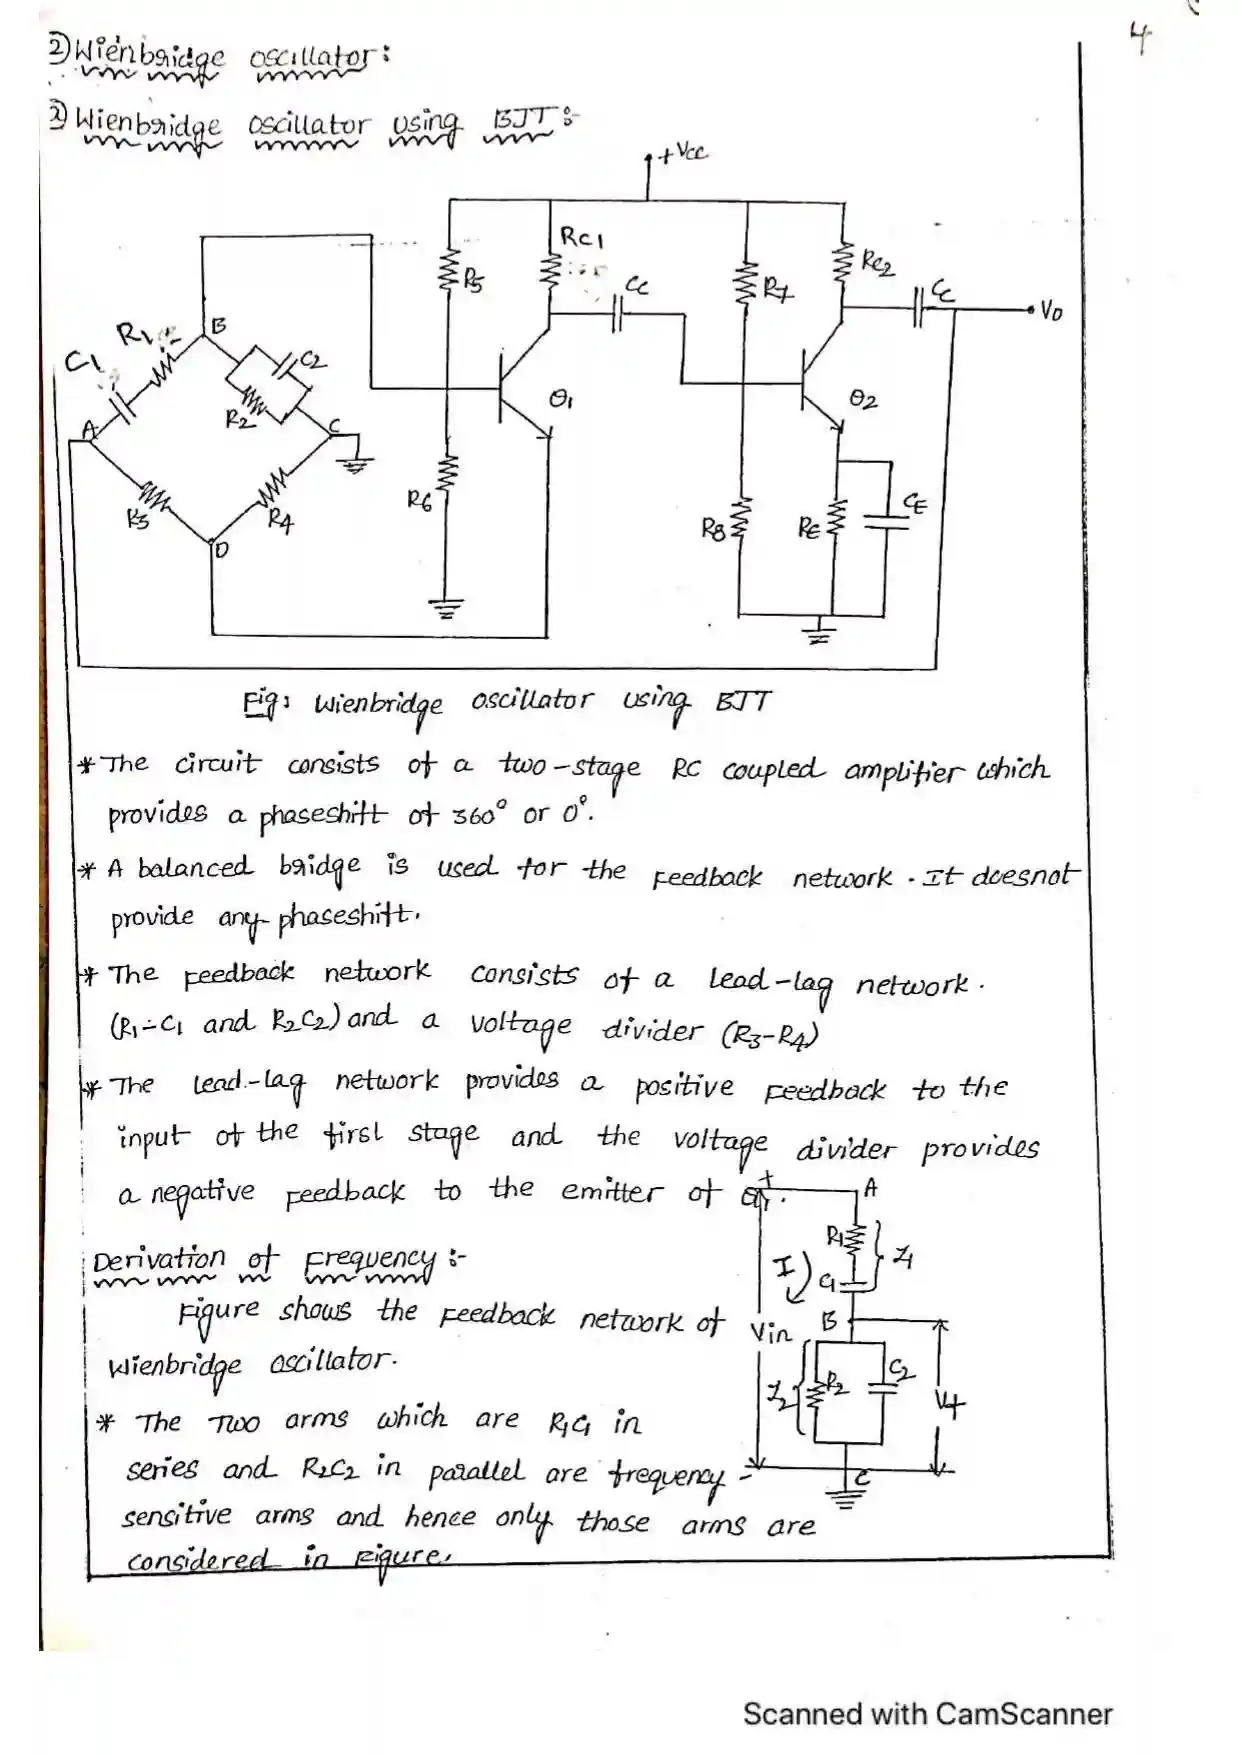 4
2) Wienbridge oscillator:
2) Wienbridge oscillator using BJT :-
+Vcc
RC1
R5
CC
R7
RC2
CC
VO
R1
C1
B
C2
R2
A
C
Q1
Q2
R3
R4
D
R6
R8
RE
CE
Fig: Wienbridge oscillator using BJT
* The circuit consists of a two-stage RC coupled amplifier which
provides a phaseshift of 360° or 0°.
* A balanced bridge is used for the Feedback network. It doesnot
provide any phaseshift.
* The Feedback network consists of a lead-lag network.
(R1-C1 and R2C2) and a voltage divider (R3-R4)
* The Lead-lag network provides a positive Feedback to the
input of the first stage and the voltage divider provides
a negative Feedback to the emitter of
+
A
R1
Z1
I
C1
B
Vin
Z2
R2
C2
Vf
-
C
Derivation of Frequency :-
Figure shows the Feedback network of
Wienbridge oscillator.
* The Two arms which are R1C1 in
series and R2C2 in parallel are frequency
sensitive arms and hence only those arms are
considered in Figure.
Scanned with CamScanner